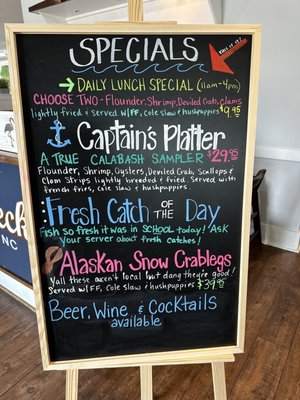 SPECIALS
THIS IS IT
DAILY LUNCH SPECIAL (11am-4pm)
CHOOSE TWO - Flounder, Shrimp, Deviled Crab, Clams
lightly fried & served w/FF, cole slaw & hushpuppies $9.95
Captain's Platter
A TRUE CALABASH SAMPLER $29.95
Flounder, Shrimp, Oysters, Deviled Crab, Scallops &
Clam Strips lightly breaded & fried. Served with
french fries, cole slaw & hushpuppies.
Fresh Catch OF THE Day
Fish so fresh it was in SCHOOL today! Ask
your server about fresh catches!
Alaskan Snow Crablegs
Y'all these aren't local but dang they're good!
Served w/FF, cole slaw & hushpuppies $39.95
Beer, Wine & Cocktails
available
ck
NC